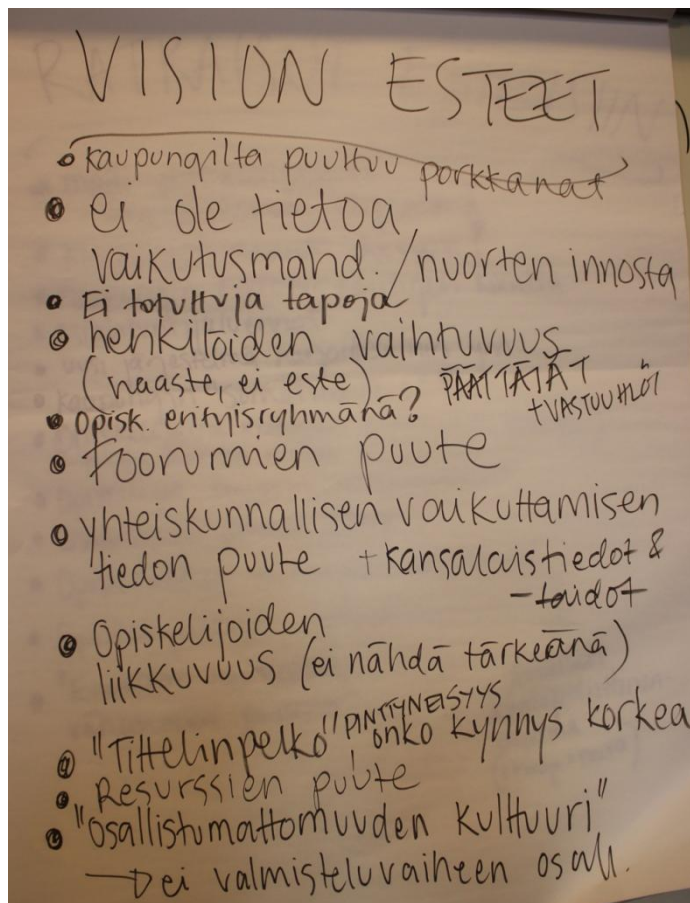 VISION ESTEET
kaupungilta puuttuu porkkanat
ei ole tietoa
vaikutusmahd. / nuorten innosta
Ei totuttuja tapoja
henkilöiden vaihtuvuus
(haaste, ei este) PÄÄTTÄJÄT
+VASTUUHLÖT
Opisk. erityisryhmänä?
Foorumien puute
yhteiskunnallisen vaikuttamisen
tiedon puute + kansalaistiedot &
-taidot
Opiskelijoiden
liikkuvuus (ei nähdä tärkeänä)
PINTTYNEISYYS
"Tittelinpelko" onko kynnys korkea
Resurssien puute
"Osallistumattomuuden kulttuuri"
→ ei valmisteluvaiheen osall.